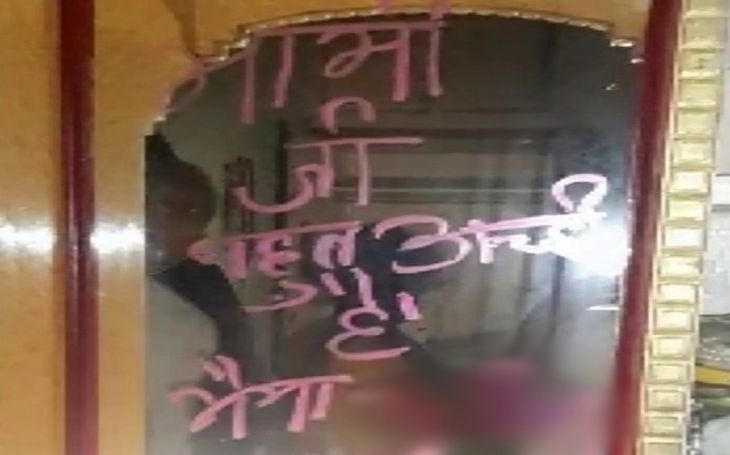 भाभी
जी
बहुत अच्छी
है
भैया